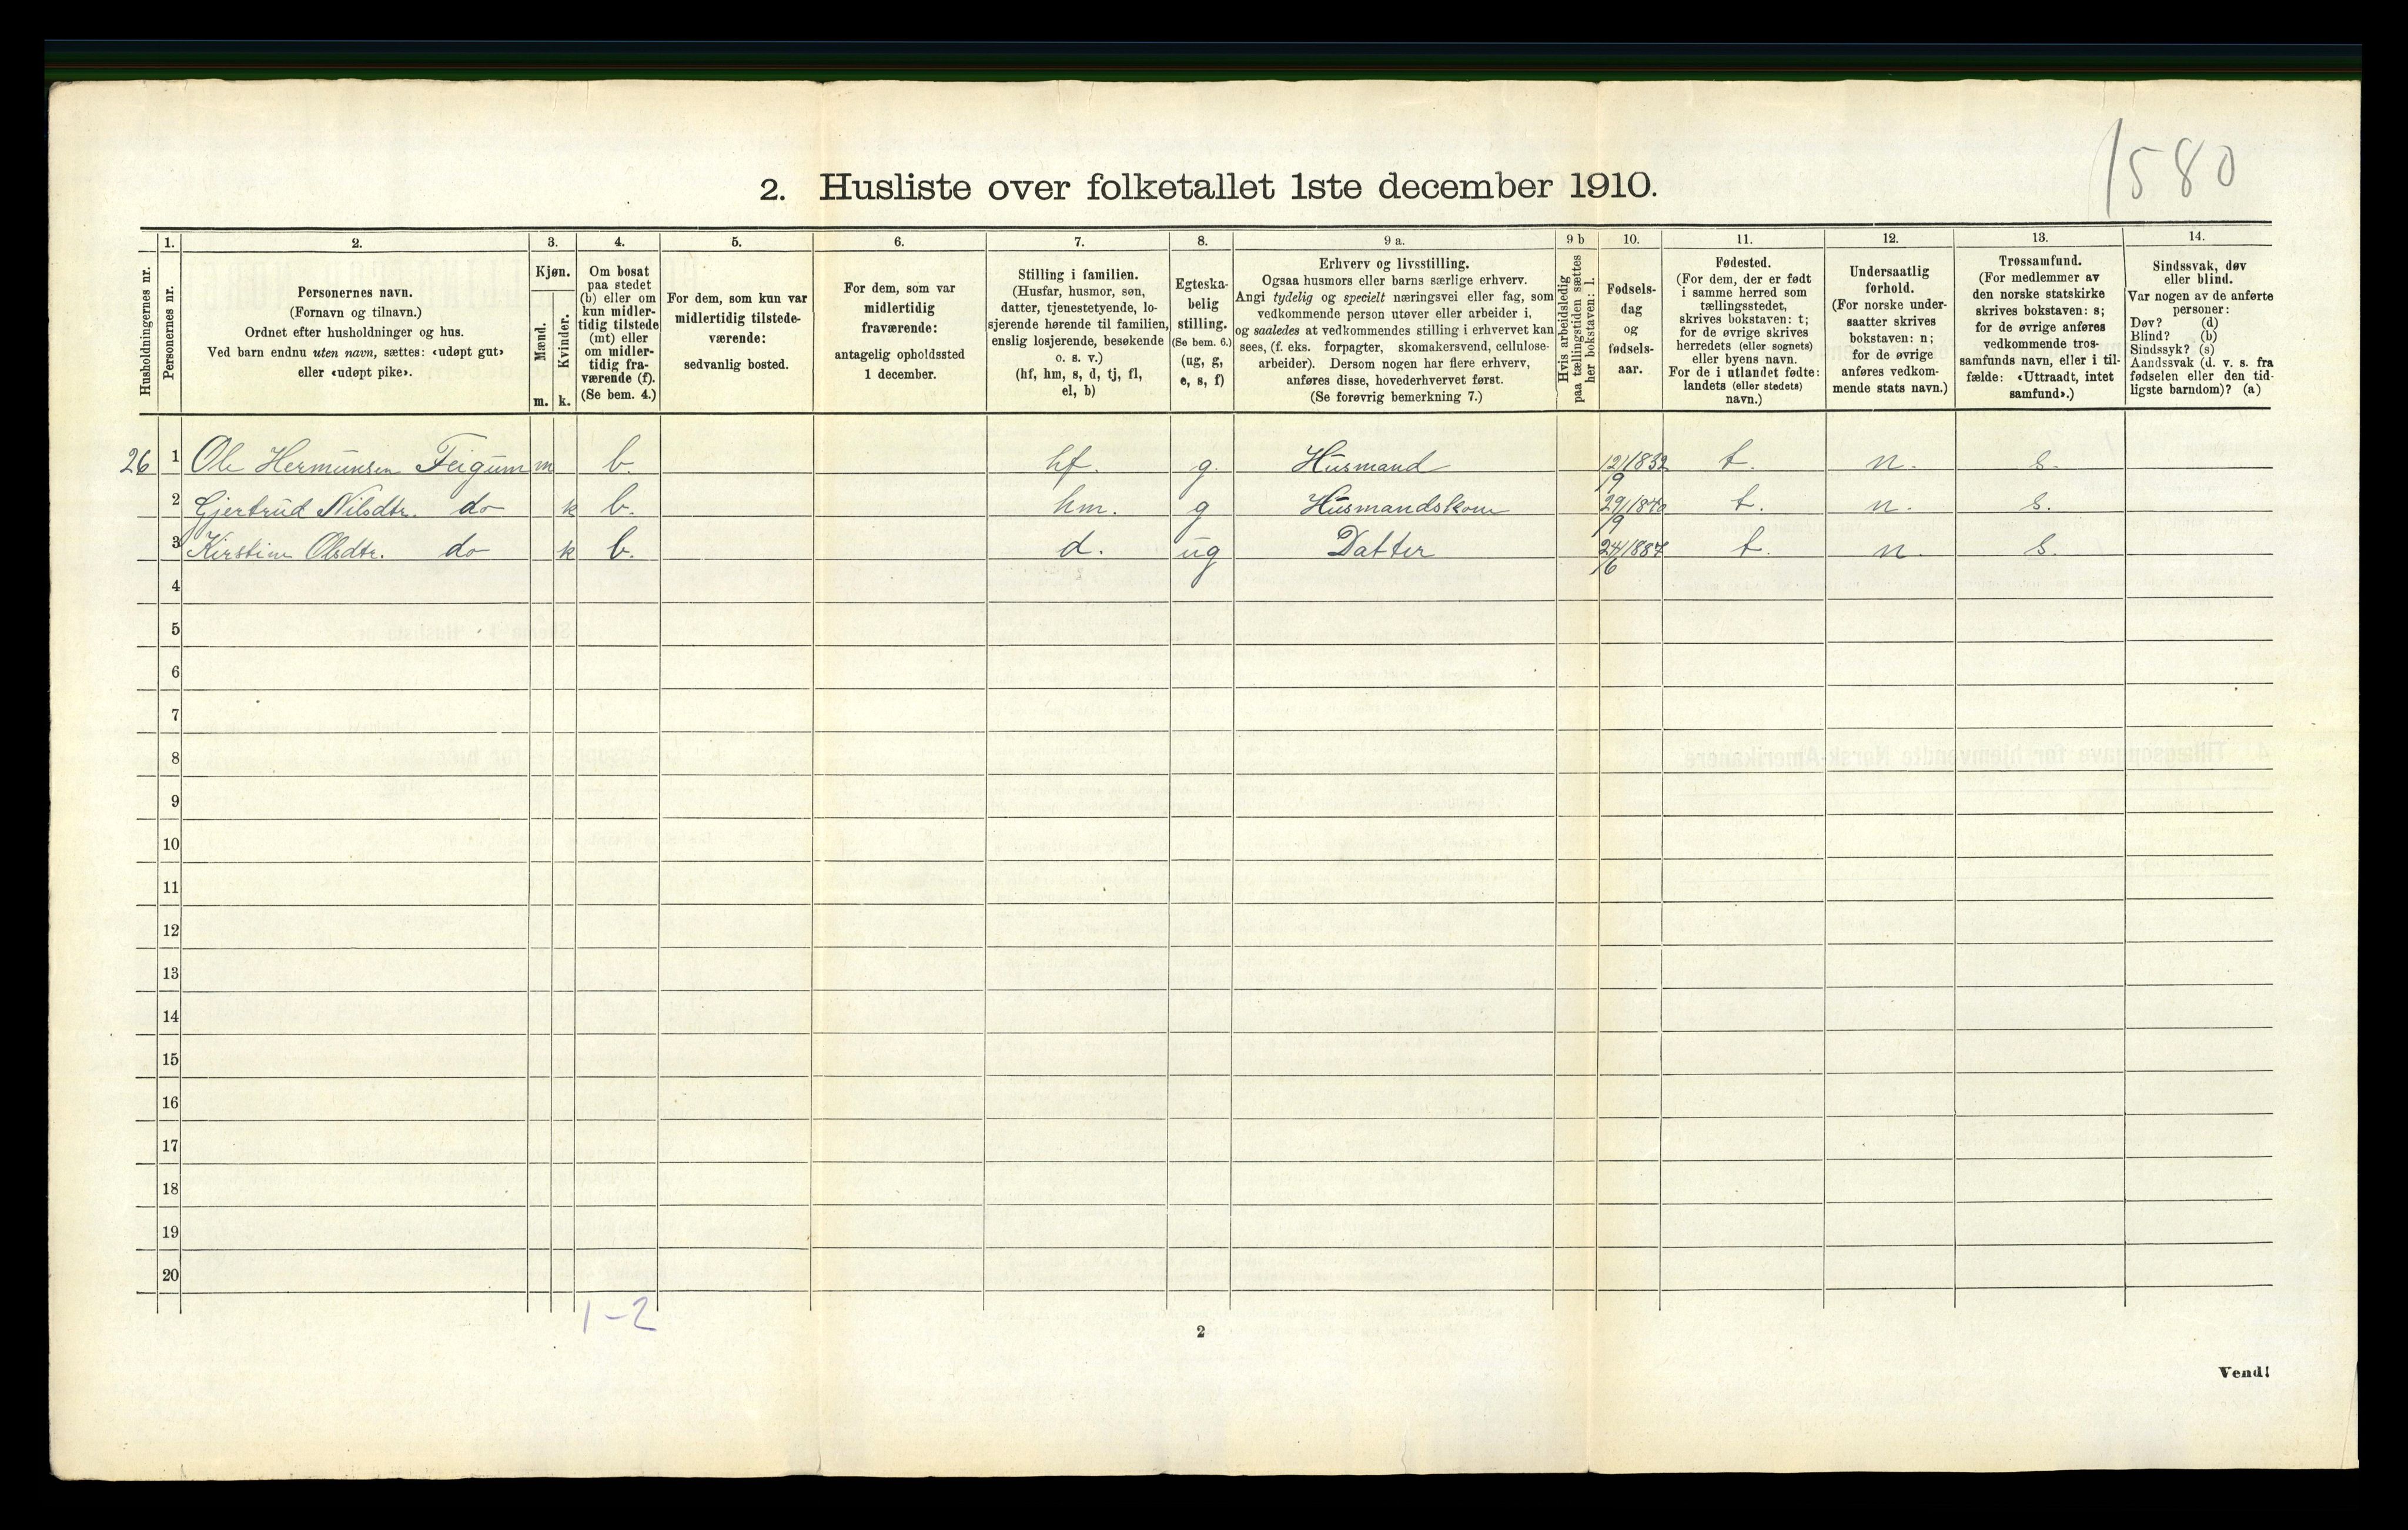 1580
2. Husliste over folketallet 1ste december 1910.
Husholdningernes nr.
1.
Personernes nr.
2.
Personernes navn.
(Fornavn og tilnavn.)
Ordnet efter husholdninger og hus.
Ved barn endnu uten navn, sættes: «udøpt gut»
eller «udøpt pike».
3.
Kjøn.
Mænd.
Kvinder.
m. k.
4.
Om bosat
paa stedet
(b) eller om
kun midler-
tidig tilstede
(mt) eller
om midler-
tidig fra-
værende (f).
(Se bem. 4.)
5.
For dem, som kun var
midlertidig tilstede-
værende:
sedvanlig bosted.
6.
For dem, som var
midlertidig
fraværende:
antagelig opholdssted
1 december.
7.
Stilling i familien.
(Husfar, husmor, søn,
datter, tjenestetyende, lo-
sjerende hørende til familien,
enslig losjerende, besøkende
o. s. v.)
(hf, hm, s, d, tj, fl,
el, b)
8.
Egteska-
belig
stilling.
(Se bem. 6.)
(ug, g,
e, s, f)
9 a.
Erhverv og livsstilling.
Ogsaa husmors eller barns særlige erhverv.
Angi tydelig og specielt næringsvei eller fag, som
vedkommende person utøver eller arbeider i,
og saaledes at vedkommendes stilling i erhvervet kan
sees, (f. eks. forpagter, skomakersvend, cellulose-
arbeider). Dersom nogen har flere erhverv,
anføres disse, hovederhvervet først.
(Se forøvrig bemerkning 7.)
9 b
Hvis arbeidsledig
paa tællingstiden sættes
her bokstaven: l.
10.
Fødsels-
dag
og
fødsels-
aar.
11.
Fødested.
(For dem, der er født
i samme herred som
tællingsstedet,
skrives bokstaven: t;
for de øvrige skrives
herredets (eller sognets)
eller byens navn.
For de i utlandet fødte:
landets (eller stedets)
navn.)
12.
Undersaatlig
forhold.
(For norske under-
saatter skrives
bokstaven: n;
for de øvrige
anføres vedkom-
mende stats navn.)
13.
Trossamfund.
(For medlemmer av
den norske statskirke
skrives bokstaven: s;
for de øvrige anføres
vedkommende tros-
samfunds navn, eller i til-
fælde: «Uttraadt, intet
samfund».)
14.
Sindssvak, døv
eller blind.
Var nogen av de anførte
personer:
Døv? (d)
Blind? (b)
Sindssyk? (s)
Aandssvak (d. v. s. fra
fødselen eller den tid-
ligste barndom)? (a)
26 1 Ole Hermunsen Feigum m b. hf. g. Husmand 12/9 1832 t. n. s.
2 Gjertrud Nilsdtr. do k b. hm. g Husmandskone 29/9 1840 t. n. s.
3 Kirstine Olsdtr. do k b. d. ug Datter 24/6 1884 t. n. s.
4
5
6
7
8
9
10
11
12
13
14
15
16
17
18
19
20
1-2
2
Vend!